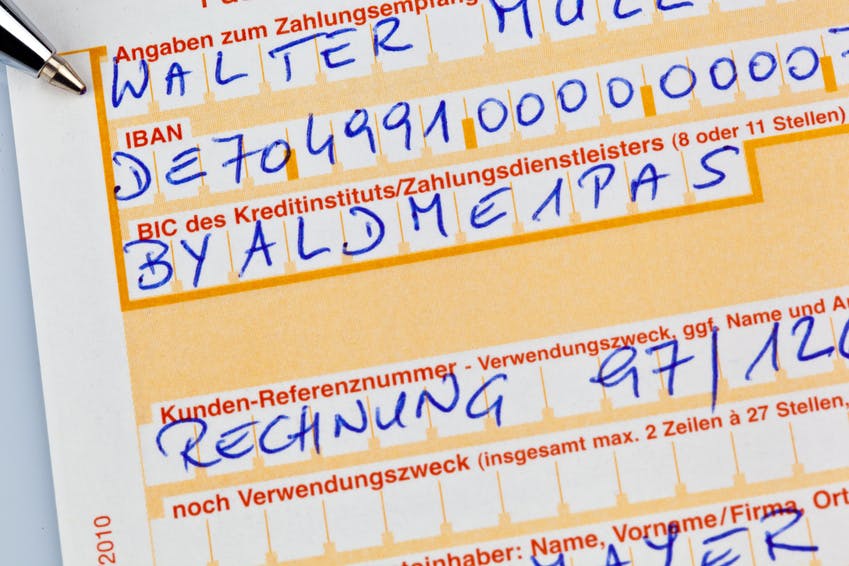 Angaben zum Zahlungsempfäng
WALTER MÜLL
IBAN
DE70499100000000007
BIC des Kreditinstituts/Zahlungsdienstleisters (8 oder 11 Stellen)
BYALDME1PAS
Kunden-Referenznummer - Verwendungszweck, ggf. Name und An
RECHNUNG 97/120
noch Verwendungszweck (insgesamt max. 2 Zeilen à 27 Stellen,
teinhaber: Name, Vorname/Firma, Ort
MAYER
2010